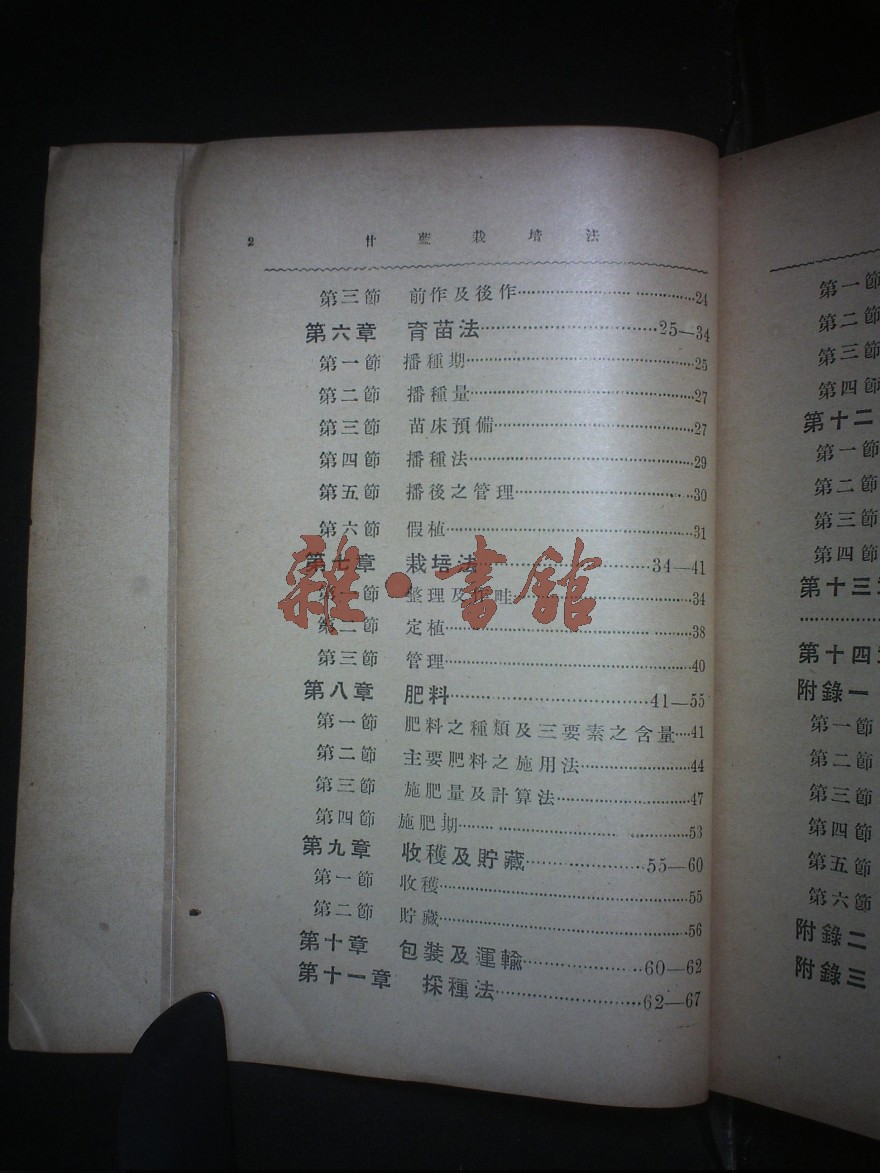 2 甘藍栽培法
第三節 前作及後作…………………24
第六章 育苗法…………………25—34
第一節 播種期…………………25
第二節 播種量…………………27
第三節 苗床預備…………………27
第四節 播種法…………………29
第五節 播後之管理…………………30
第六節 假植…………………31
第七章 栽培法…………………34—41
第一節 整理及作畦…………………34
第二節 定植…………………38
第三節 管理…………………40
第八章 肥料…………………41—55
第一節 肥料之種類及三要素之含量…41
第二節 主要肥料之施用法…………………44
第三節 施肥量及計算法…………………47
第四節 施肥期…………………53
第九章 收穫及貯藏…………………55—60
第一節 收穫…………………55
第二節 貯藏…………………56
第十章 包裝及運輸…………………60—62
第十一章 採種法…………………62—67
雜·書舘
第一節
第二節
第三節
第四節
第十二
第一節
第二節
第三節
第四節
第十三章
…………………
第十四章
附錄一
第一節
第二節
第三節
第四節
第五節
第六節
附錄二
附錄三